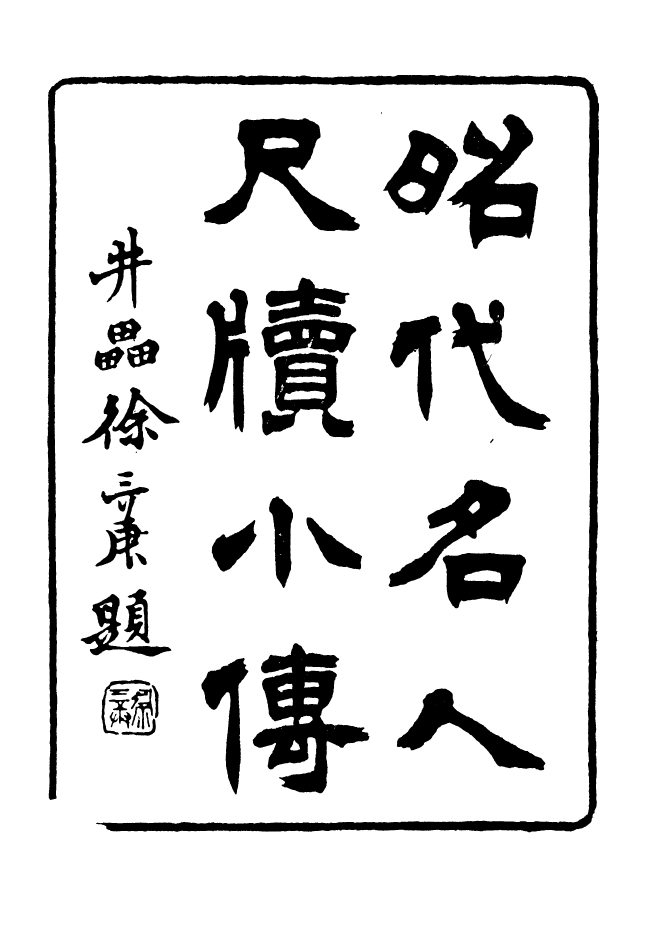 昭代名人
尺牘小傳
井罍徐三庚題